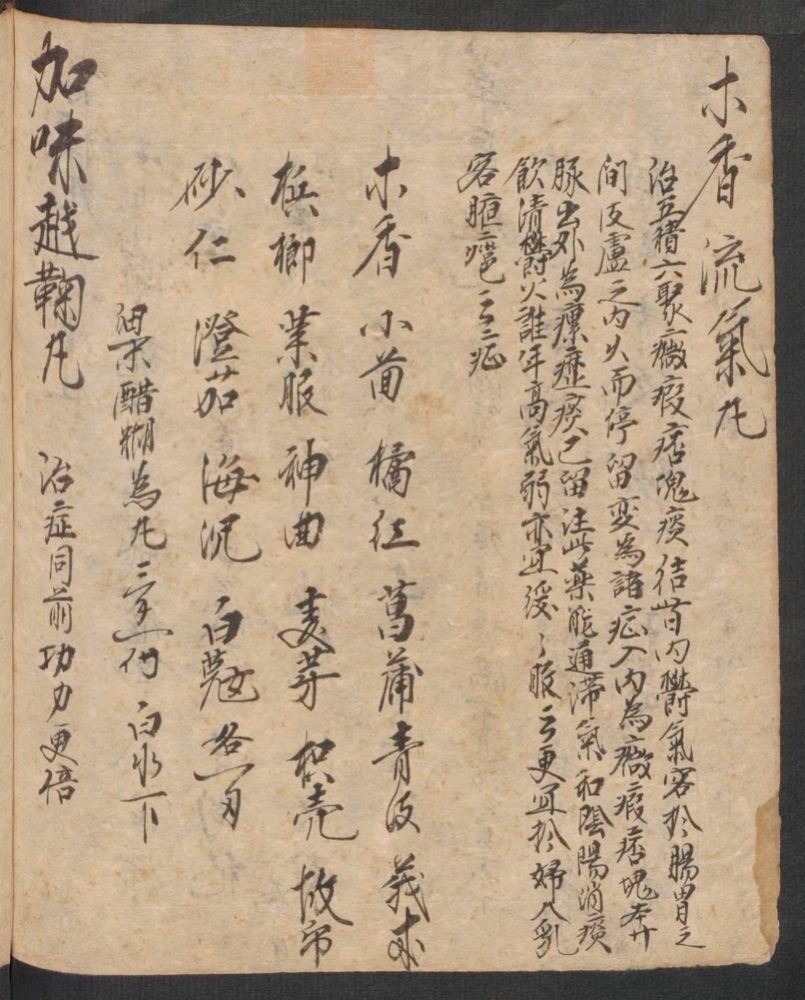 木香流氣丸
治五積六聚癥瘕痞塊痰结皆内鬱氣客於腸胃之
間皮膚之内久而停留変為諸症入内為癥瘕痞塊
豚出外為瘰癧痰已留注此藥能通滯氣和陰陽消痰
飲清鬱火誰年高氣弱亦宜緩〻服之更宜扵婦人乳
客之症
木香 小茴 橘红 菖蒲 青皮 莪朮
梹榔 業服 神曲 麦芽 枳壳 故帋
砂仁 澄茄 海沉 白蔻 各一刃
細末醋糊為丸 白水下
加味越鞠丸 治症同前功力更倍